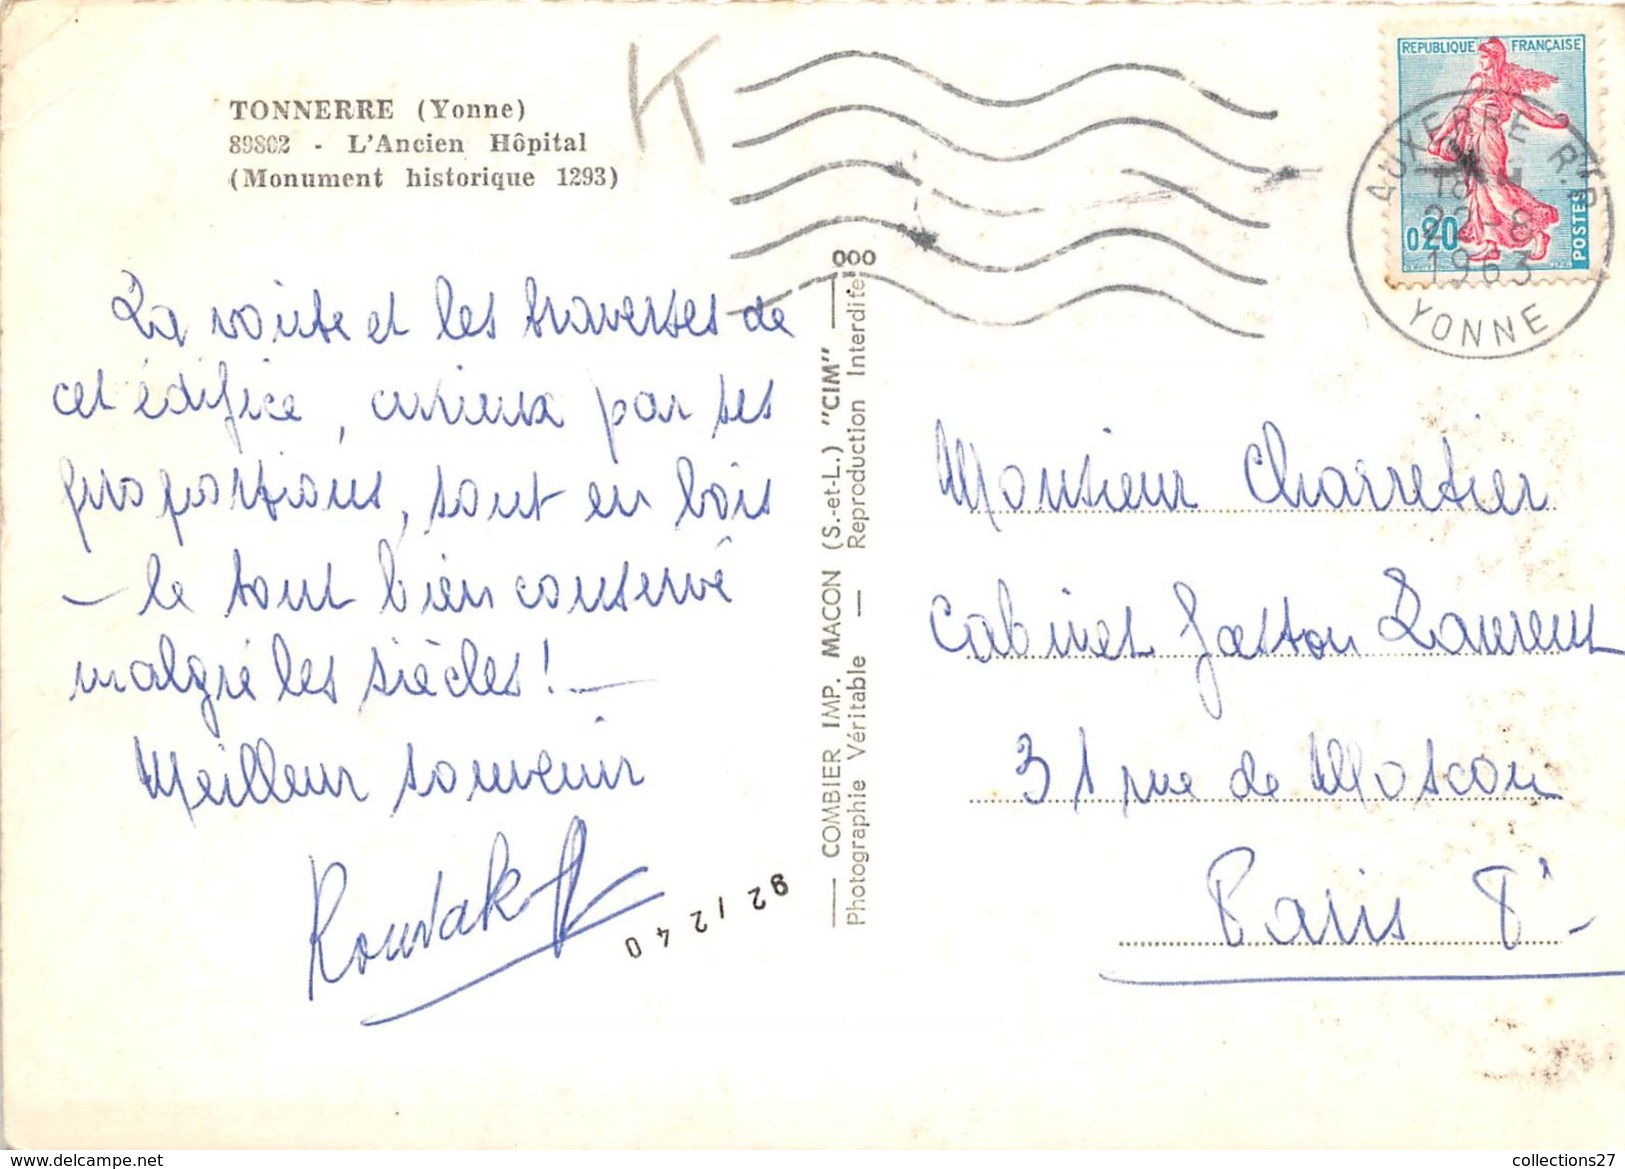 TONNERRE (Yonne)
89802 - L'Ancien Hôpital
(Monument historique 1293)
K
REPUBLIQUE FRANÇAISE
0,20
POSTES
AUXERRE R.P.
18 H
22-8
1963
YONNE
La voûte et les traverses de
cet édifice, curieux par ses
proportions, sont en bois
– le tout bien conservé
malgré les siècles! –
Meilleur souvenir
92/240
000
COMBIER IMP. MACON (S.-et-L.) "CIM"
Photographie Véritable — Reproduction Interdite
Monsieur Charretier
Cabinet Gaston Laurent
31 rue de Moscou
Paris 8e -
collections27